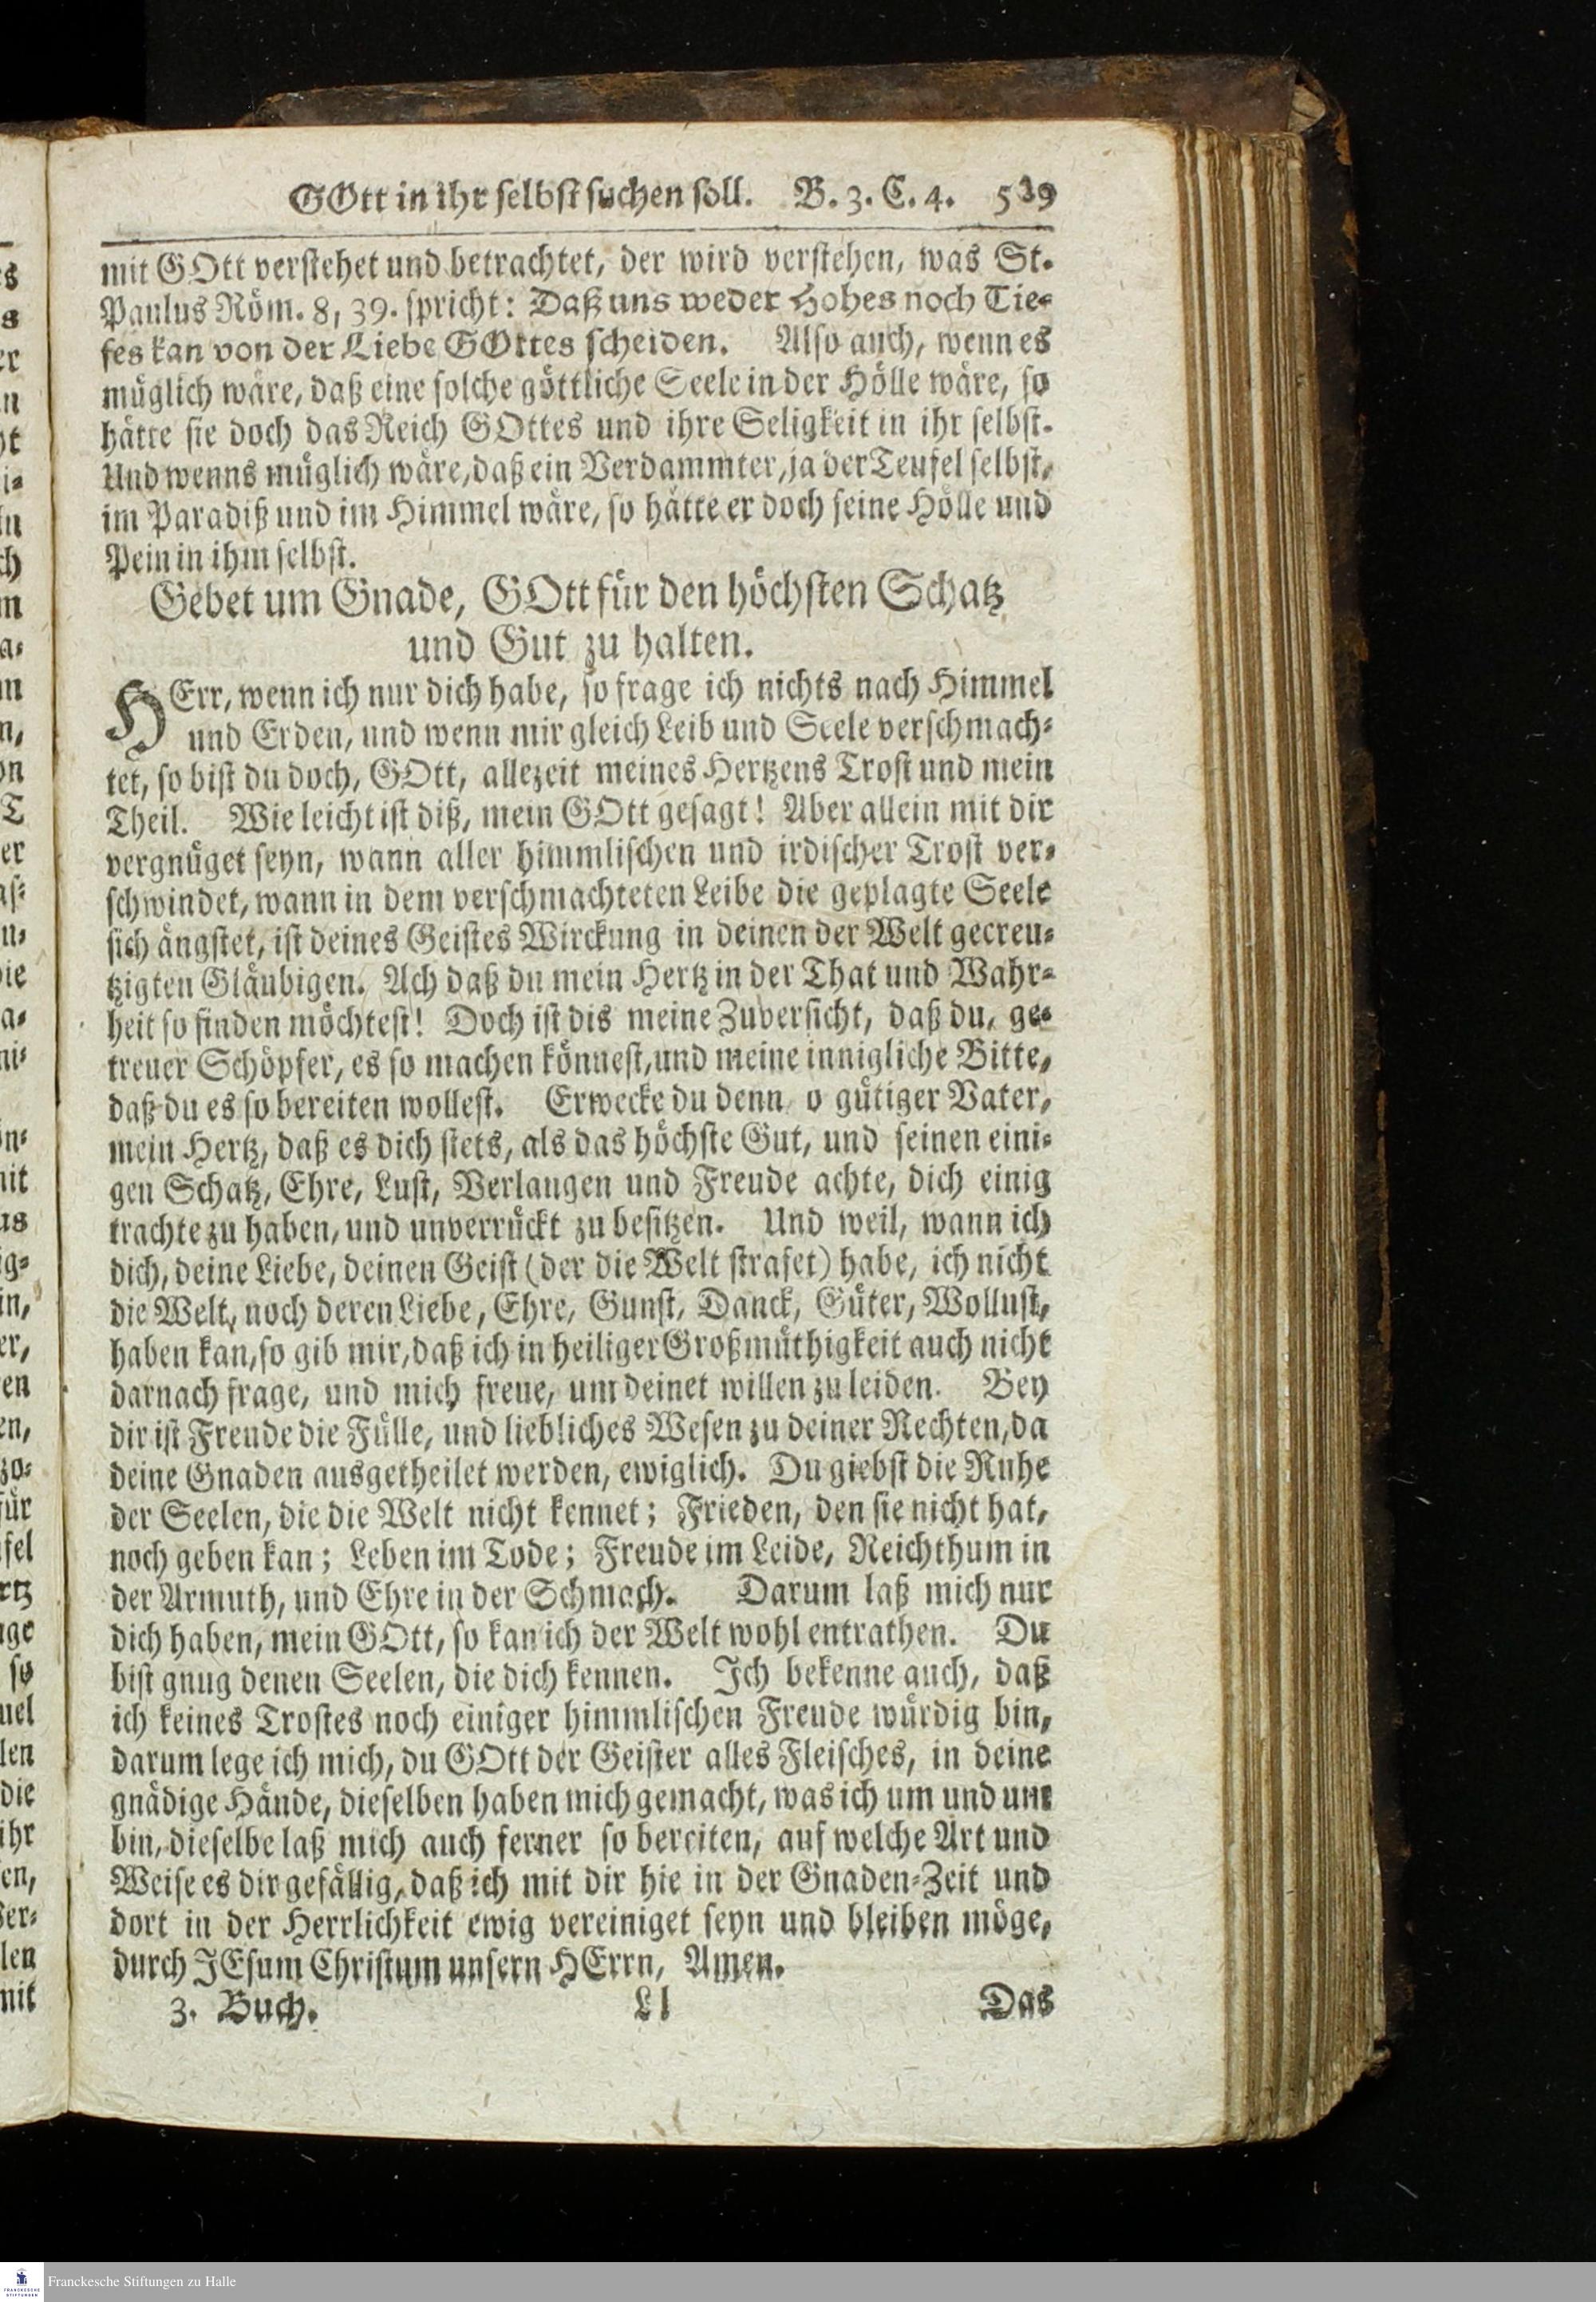 GOtt in ihr selbst suchen soll. B. 3. C. 4. 539
mit GOtt verstehet und betrachtet, der wird verstehen, was St.
Paulus Röm. 8, 39. spricht: Daß uns weder Hohes noch Tie-
fes kan von der Liebe GOttes scheiden. Also auch, wenn es
müglich wäre, daß eine solche göttliche Seele in der Hölle wäre, so
hätte sie doch das Reich GOttes und ihre Seligkeit in ihr selbst.
Und wenns müglich wäre, daß ein Verdammter, ja der Teufel selbst,
im Paradiß und im Himmel wäre, so hätte er doch seine Hölle und
Pein in ihm selbst.
Gebet um Gnade, GOtt für den höchsten Schatz
und Gut zu halten.
HErr, wenn ich nur dich habe, so frage ich nichts nach Himmel
und Erden, und wenn mir gleich Leib und Seele verschmach-
tet, so bist du doch, GOtt, allezeit meines Hertzens Trost und mein
Theil. Wie leicht ist diß, mein GOtt gesagt! Aber allein mit dir
vergnüget seyn, wann aller himmlischen und irdischer Trost ver-
schwindet, wann in dem verschmachteten Leibe die geplagte Seele
sich ängstet, ist deines Geistes Wirckung in deinen der Welt gecreu-
tzigten Gläubigen. Ach daß du mein Hertz in der That und Wahr-
heit so finden möchtest! Doch ist dis meine Zuversicht, daß du, ge-
treuer Schöpfer, es so machen könnest, und meine innigliche Bitte,
daß du es so bereiten wollest. Erwecke du denn o gütiger Vater,
mein Hertz, daß es dich stets, als das höchste Gut, und seinen eini-
gen Schatz, Ehre, Lust, Verlangen und Freude achte, dich einig
trachte zu haben, und unverrückt zu besitzen. Und weil, wann ich
dich, deine Liebe, deinen Geist (der die Welt strafet) habe, ich nicht
die Welt, noch deren Liebe, Ehre, Gunst, Danck, Güter, Wollust,
haben kan, so gib mir, daß ich in heiliger Großmüthigkeit auch nicht
darnach frage, und mich freue, um deinet willen zu leiden. Bey
dir ist Freude die Fülle, und liebliches Wesen zu deiner Rechten, da
deine Gnaden ausgetheilet werden, ewiglich. Du giebst die Ruhe
der Seelen, die die Welt nicht kennet; Frieden, den sie nicht hat,
noch geben kan; Leben im Tode; Freude im Leide, Reichthum in
der Armuth, und Ehre in der Schmach. Darum laß mich nur
dich haben, mein GOtt, so kan ich der Welt wohl entrathen. Du
bist gnug denen Seelen, die dich kennen. Ich bekenne auch, daß
ich keines Trostes noch einiger himmlischen Freude würdig bin,
darum lege ich mich, du GOtt der Geister alles Fleisches, in deine
gnädige Hände, dieselben haben mich gemacht, was ich um und um
bin, dieselbe laß mich auch ferner so bereiten, auf welche Art und
Weise es dir gefällig, daß ich mit dir hie in der Gnaden-Zeit und
dort in der Herrlichkeit ewig vereiniget seyn und bleiben möge,
durch JEsum Christum unsern HErrn, Amen.
3. Buch. Ll Das
Franckesche Stiftungen zu Halle